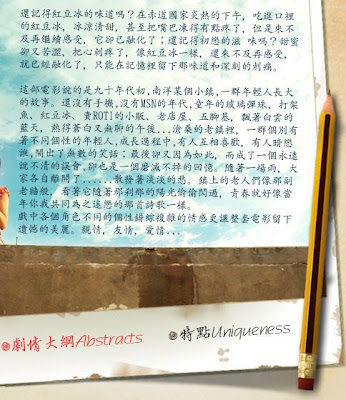 還記得紅豆冰的味道嗎？在赤道國家炎熱的下午，吃進口裡
的紅豆冰，冰涼清甜，甚至把嘴巴凍得有點疼了，但是來不
及再繼續感受，它卻已融化了；還記得初戀的滋 味嗎？甜蜜
卻又苦澀，把心刺疼了，像紅豆冰一樣，還來不及再感受，
就已經融化了，只能在記憶裡留下那味道和深刻的刺痛。
這部電影說的是九十年代初，南洋某個小鎮，一群年輕人長大
的故事。還沒有手機,沒有MSN的年代,童年的玻璃彈珠、打架
魚、紅豆冰、賣ROTI的小販、老店屋、五腳基，飄著白雲的
藍天，熱得蒼白又無聊的午後...滄桑的老鎮裡，一群個別有
著不同個性的年輕人,成長過程中,有人互相喜歡，有人暗戀
誰,鬧出了無數的笑話；最後卻又因為如此，而成了一個永遠
說不清的誤會,卻也是一個磨滅不掉的回憶。隨著一場雨，大
家各自離開了......散發著淡淡的愁。鎮上的老人們像那副
老牆般，看著它隨著那剎那的陽光偷偷閃過，青春就好像當
年你我共同為之迷戀的那首詩歌一樣。
戲中各個角色不同的個性錯綜複雜的情感更讓整套電影留下
遺憾的美麗。親情，友情，愛情...
劇情大綱Abstracts
特點Uniqueness